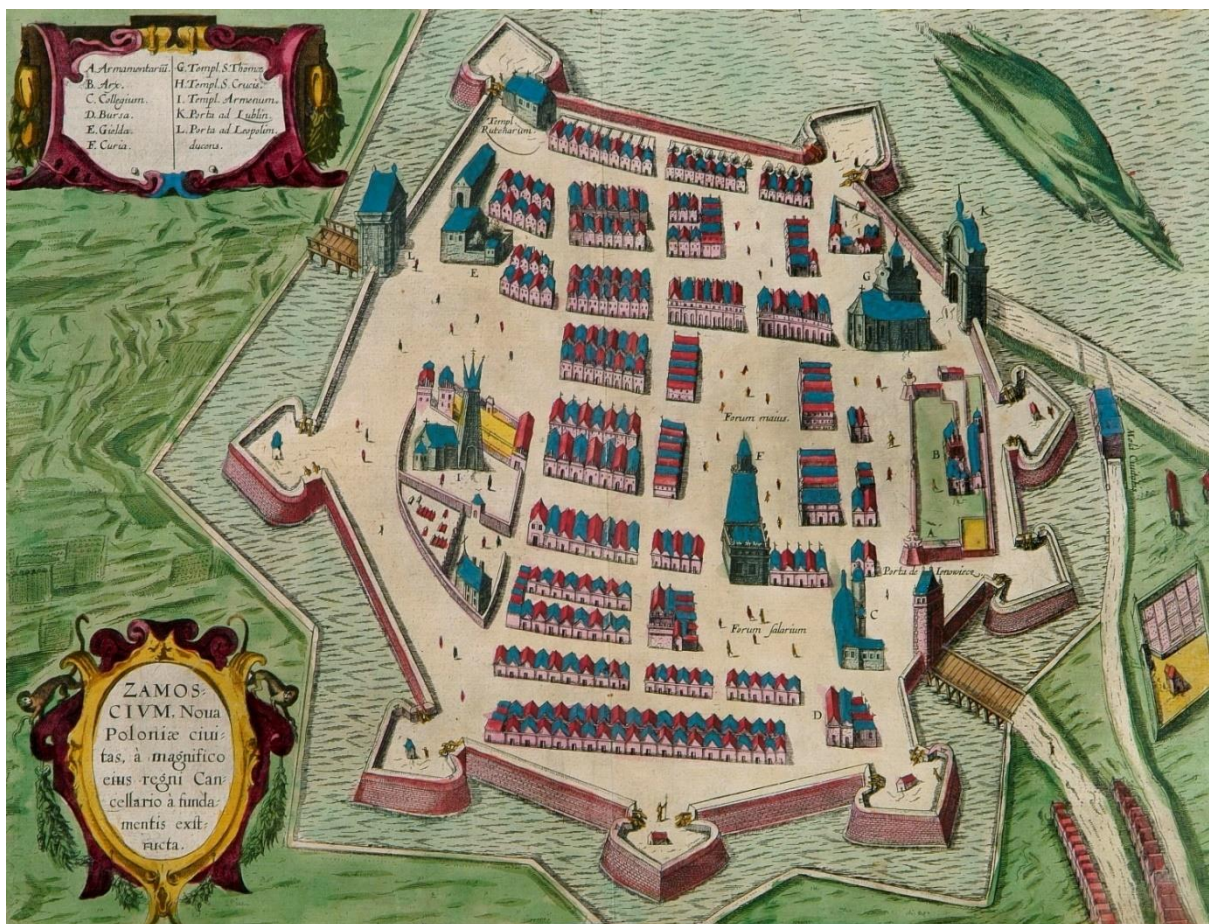 A. Armamentariū.
B. Arx.
C. Collegium.
D. Bursa.
E. Gielda.
F. Curia.
G. Templ. S. Thomæ
H. Templ. S. Crucis.
I. Templ. Armenum.
K. Porta ad Lublin.
L. Porta ad Leopolim
ducens.
Templ.
Rutenarum.
K
L
E
G
Forum maius.
F
B
I
A
Porta de
C
Forum salarium
D
ZAMOS-
CIVM, Noua
Poloniæ ciui-
tas, à magnifico
eius regni Can-
cellario à funda-
mentis exst-
ructa.